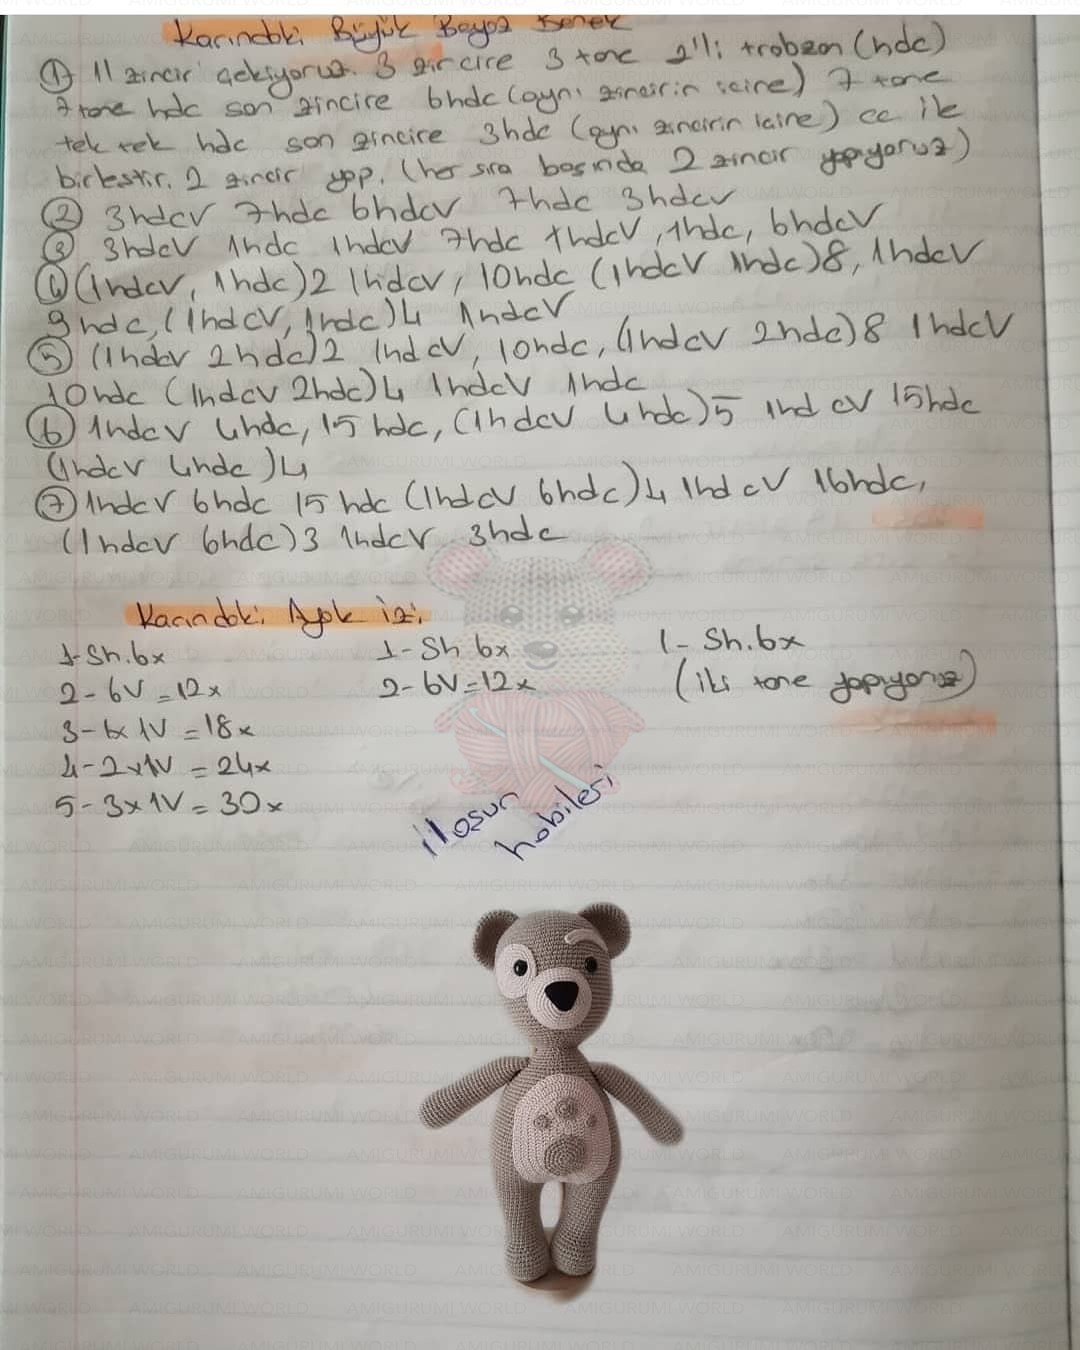 Karındaki Büyük Beyaz Benek
① 11 zincir çekiyoruz. 3 zincire 3 tane 2'li trabzan (hdc)
7 tane hdc son zincire 6hdc (aynı zincirin içine) 7 tane
tek tek hdc son zincire 3hdc (aynı zincirin içine) cc ile
birleştir. 2 zincir yap. (her sıra başında 2 zincir yapıyoruz)
② 3hdcV 7hdc 6hdcV 7hdc 3hdcV
③ 3hdcV 1hdc 1hdcV 7hdc 1hdcV, 1hdc, 6hdcV
④ (1hdcV, 1hdc)2 1hdcV, 10hdc (1hdcV 1hdc)8, 1hdcV
9hdc, (1hdcV, 1hdc)4 1hdcV
⑤ (1hdcV 2hdc)2 1hdcV, 10hdc, (1hdcV 2hdc)8 1hdcV
10hdc (1hdcV 2hdc)4 1hdcV 1hdc
⑥ 1hdcV 4hdc, 15 hdc, (1hdcV 4hdc)5 1hdcV 15hdc
(1hdcV 4hdc)4
⑦ 1hdcV 6hdc 15 hdc (1hdcV 6hdc)4 1hdcV 16hdc,
(1hdcV 6hdc)3 1hdcV 3hdc
Karındaki Ayak izi
1-Sh.6x
2-6V=12x
3-1x1V=18x
4-2x1V=24x
5-3x1V=30x
1-Sh 6x
2-6V=12x
1-Sh.6x
(iki tane yapıyoruz)
hobileri
AMIGURUMI WORLD